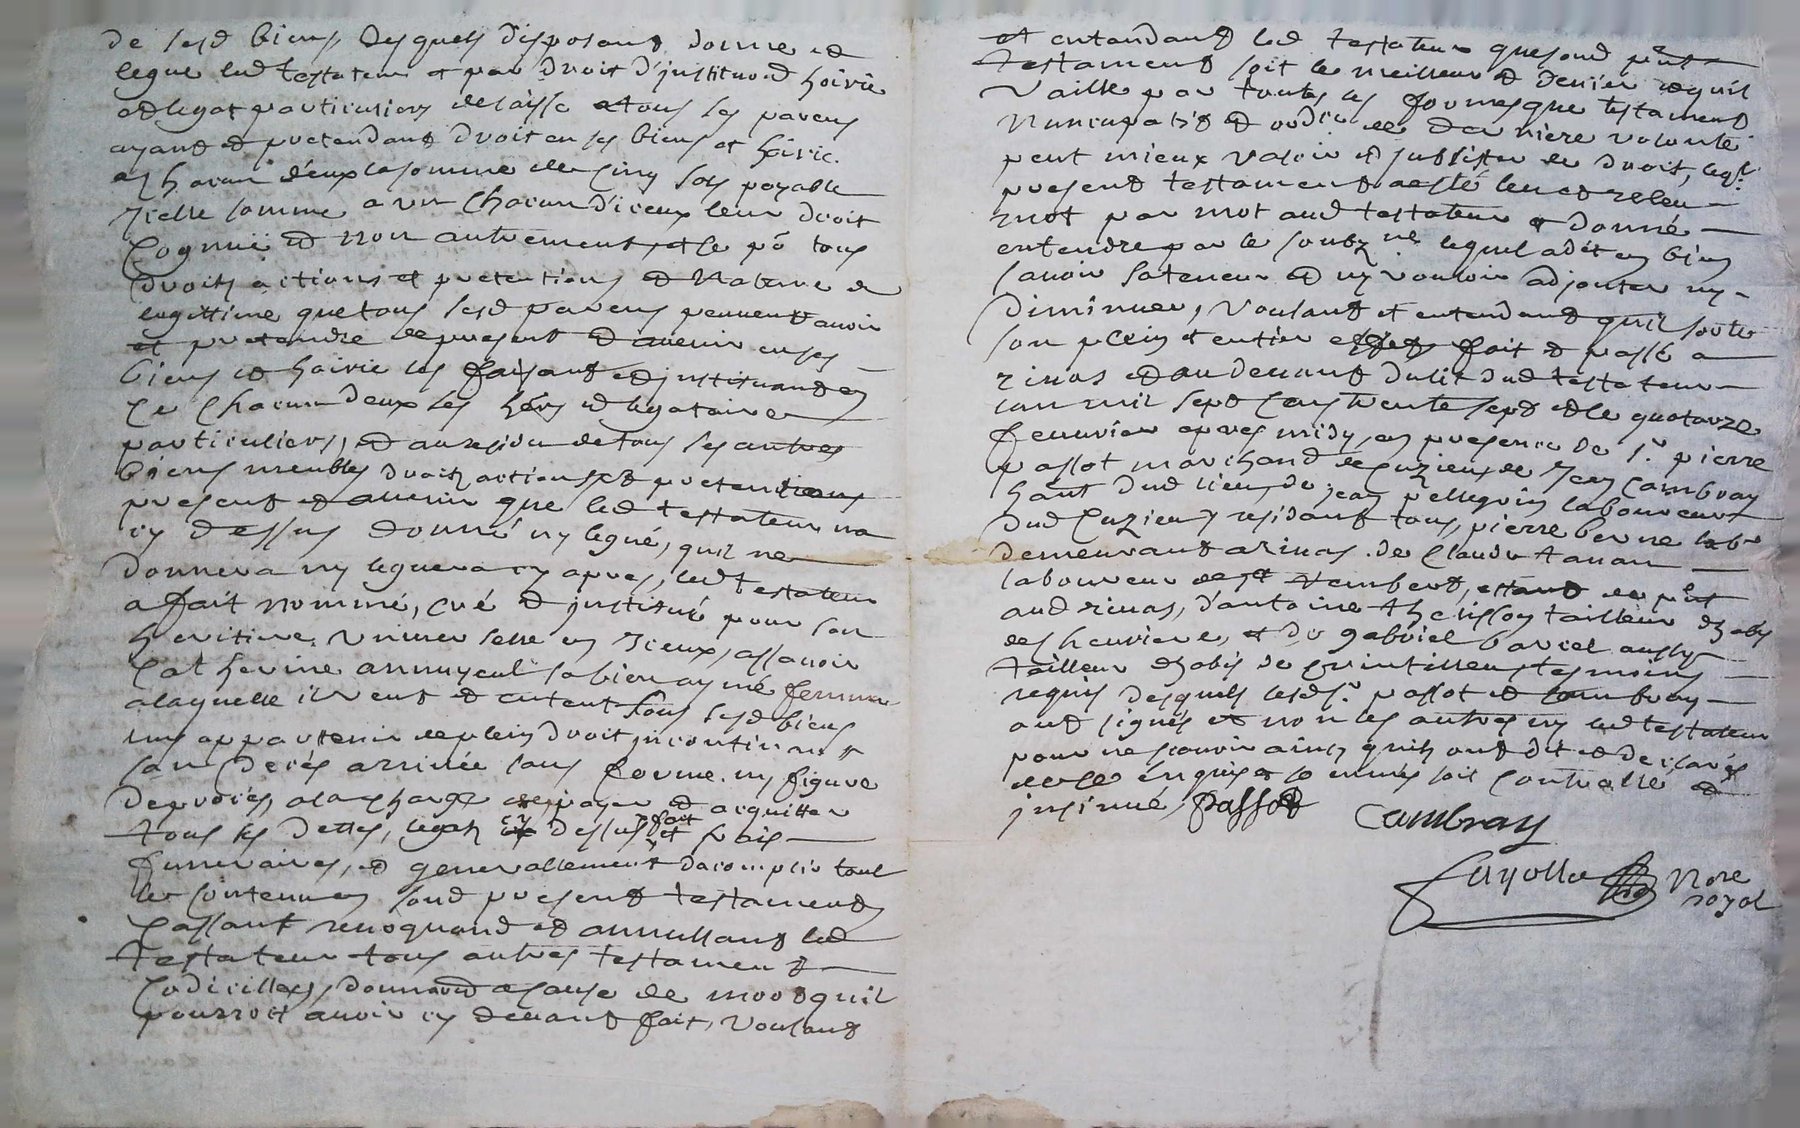 de sesd biens, desquels disposant donne et
legue led testateur et par droit d'institu͠on d'hoirie
et legat particuliers delaisse a tous ses parens
ayant et pretendant droit en ses biens et hoirie
et chacun d'eux la somme de cinq sols payable
icelle somme a un chacun d'iceux leur droit
cognu et non autrement, et ce po͠ tous
droits actions et pretentions et nature de
legittime que tous sesd parens peuvent avoir
et pretendre de present et avenir en ses
biens et hoirie les faisant et instituant en
ce chacun deux ses hers et legataires
particuliers, et au residu de tous ses autres
biens meubles droits actions et pretentions
present et avenir que led testateur na
cy dessus donné ny legué, quil ne
donnera ny leguera cy apres, led testateur
a fait nommé, créé et institué pour son
heritiere universelle en iceux, assavoir
Catherine sa bien aymé femme
a laquelle il veut et entent tous sesd biens
appartenir de plein droit incontinant
son deces arrivée sans forme ny figure
de procés, a la charge de payer et acquitter
tous ses dettes, legats cy dessus fait et frais
funeraires, et generallement dacomplir tout
le contenu en sond present testament
cassant revoquand et annullant led
testateur tous autres testament
codicilles, donna͠ons a cause de mort quil
pourroit avoir cy devant fait, voulant
et entandant led testateur que sond pnt
testament soit le meilleur et dernier et quil
vaille par toutes les formes que testament
nuncupatif et ordre de derniere volonte
peut mieux valoir et subsister de droit, leql
present testament a esté leu et releu
mot par mot aud testateur et donné
entendre par le soubz ne lequel a dit en bien
savoir sa teneur et ny vouloir adjouter ny
diminuer, voulant et entendant quil sorte
son plein et entier effet fait et passé a
rivas et au devant du lit dud testateur
lan mil sept cens trente sept et le quatorze
feuvrier apres midy, en presence de sr pierre
passot marchand de cuzieu, de sr jean cambray
hant dud lieu, de jean pellegrin laboureur
dud Cuzieu y residant tous, pierre berne labr
demeurant a rivas, de claude tavan
laboureur de st rembert, estant de pnt
aud rivas, d'antoine thelisson tailleur dhabis
de cheuriere, et de gabriel barcel aussy
tailleur dhabis de tesmoins
requis desquels lesd srs passot et cambray
ont signés et non les autres ny led testateur
pour ne scavoir ainsy quils ont dit et declarés
de ce enquis et sommés soit controllé et
insinué, Passot
Cambray
Fayolle Nore
royal